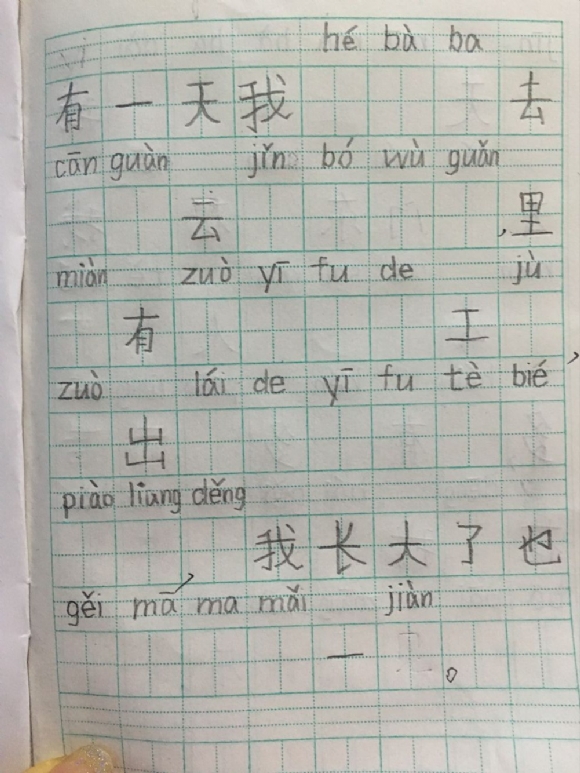 hé bà ba
有一天我 去
cān guàn jǐn bó wù guǎn
云 ,里
miàn zuò yī fu de jù
有 工
zuò lái de yī fu tè bié,
出
piào liang děng
我长大了也
gěi mā ma mǎi jiàn
一 。